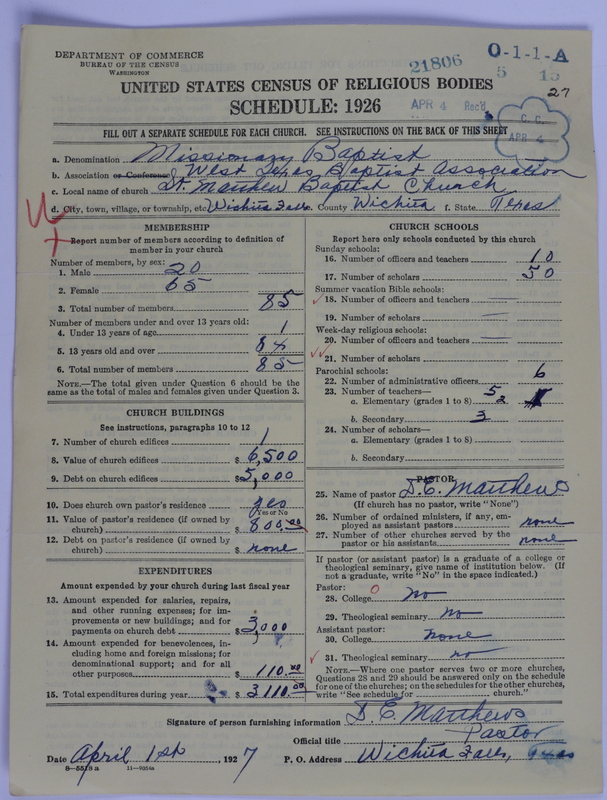 DEPARTMENT OF COMMERCE
BUREAU OF THE CENSUS
WASHINGTON
21806
O-1-1-A
5 15
27
UNITED STATES CENSUS OF RELIGIOUS BODIES
SCHEDULE: 1926
APR 4 Rec'd
C. C.
APR 4
FILL OUT A SEPARATE SCHEDULE FOR EACH CHURCH. SEE INSTRUCTIONS ON THE BACK OF THIS SHEET
a. Denomination Missionary Baptist
b. Association or Conference West Texas Baptist Association
c. Local name of church St. Matthew Baptist Church
d. City, town, village, or township, etc. Wichita Falls e. County Wichita f. State Texas
MEMBERSHIP
Report number of members according to definition of member in your church
Number of members, by sex:
1. Male 20
2. Female 65
3. Total number of members 85
Number of members under and over 13 years old:
4. Under 13 years of age 1
5. 13 years old and over 84
6. Total number of members 85
NOTE.—The total given under Question 6 should be the
same as the total of males and females given under Question 3.
CHURCH BUILDINGS
See instructions, paragraphs 10 to 12
7. Number of church edifices 1
8. Value of church edifices $6,500
9. Debt on church edifices $5,000
10. Does church own pastor's residence yes
Yes or No
11. Value of pastor's residence (if owned by
church) $800.00
12. Debt on pastor's residence (if owned by
church) $ none
EXPENDITURES
Amount expended by your church during last fiscal year
13. Amount expended for salaries, repairs,
and other running expenses; for im-
provements or new buildings; and for
payments on church debt $3,000
14. Amount expended for benevolences, in-
cluding home and foreign missions; for
denominational support; and for all
other purposes $110.00
15. Total expenditures during year $3110.00
CHURCH SCHOOLS
Report here only schools conducted by this church
Sunday schools:
16. Number of officers and teachers 10
17. Number of scholars 50
Summer vacation Bible schools:
18. Number of officers and teachers
19. Number of scholars
Week-day religious schools:
20. Number of officers and teachers
21. Number of scholars
Parochial schools:
22. Number of administrative officers 6
23. Number of teachers— 5
a. Elementary (grades 1 to 8) 2
b. Secondary 3
24. Number of scholars—
a. Elementary (grades 1 to 8)
b. Secondary
PASTOR
25. Name of pastor D. E. Matthews
(If church has no pastor, write "None")
26. Number of ordained ministers, if any, em-
ployed as assistant pastors none
27. Number of other churches served by the
pastor or his assistants none
If pastor (or assistant pastor) is a graduate of a college or
theological seminary, give name of institution below. (If
not a graduate, write "No" in the space indicated.)
Pastor:
28. College no
29. Theological seminary no
Assistant pastor:
30. College none
31. Theological seminary no
NOTE.—Where one pastor serves two or more churches,
Questions 28 and 29 should be answered only on the schedule
for one of the churches; on the schedules for the other churches,
write "See schedule for church."
Signature of person furnishing information D. E. Matthews
Official title Pastor
Date April 1st, 1927 P. O. Address Wichita Falls, Texas
8—5519a 11—9054a